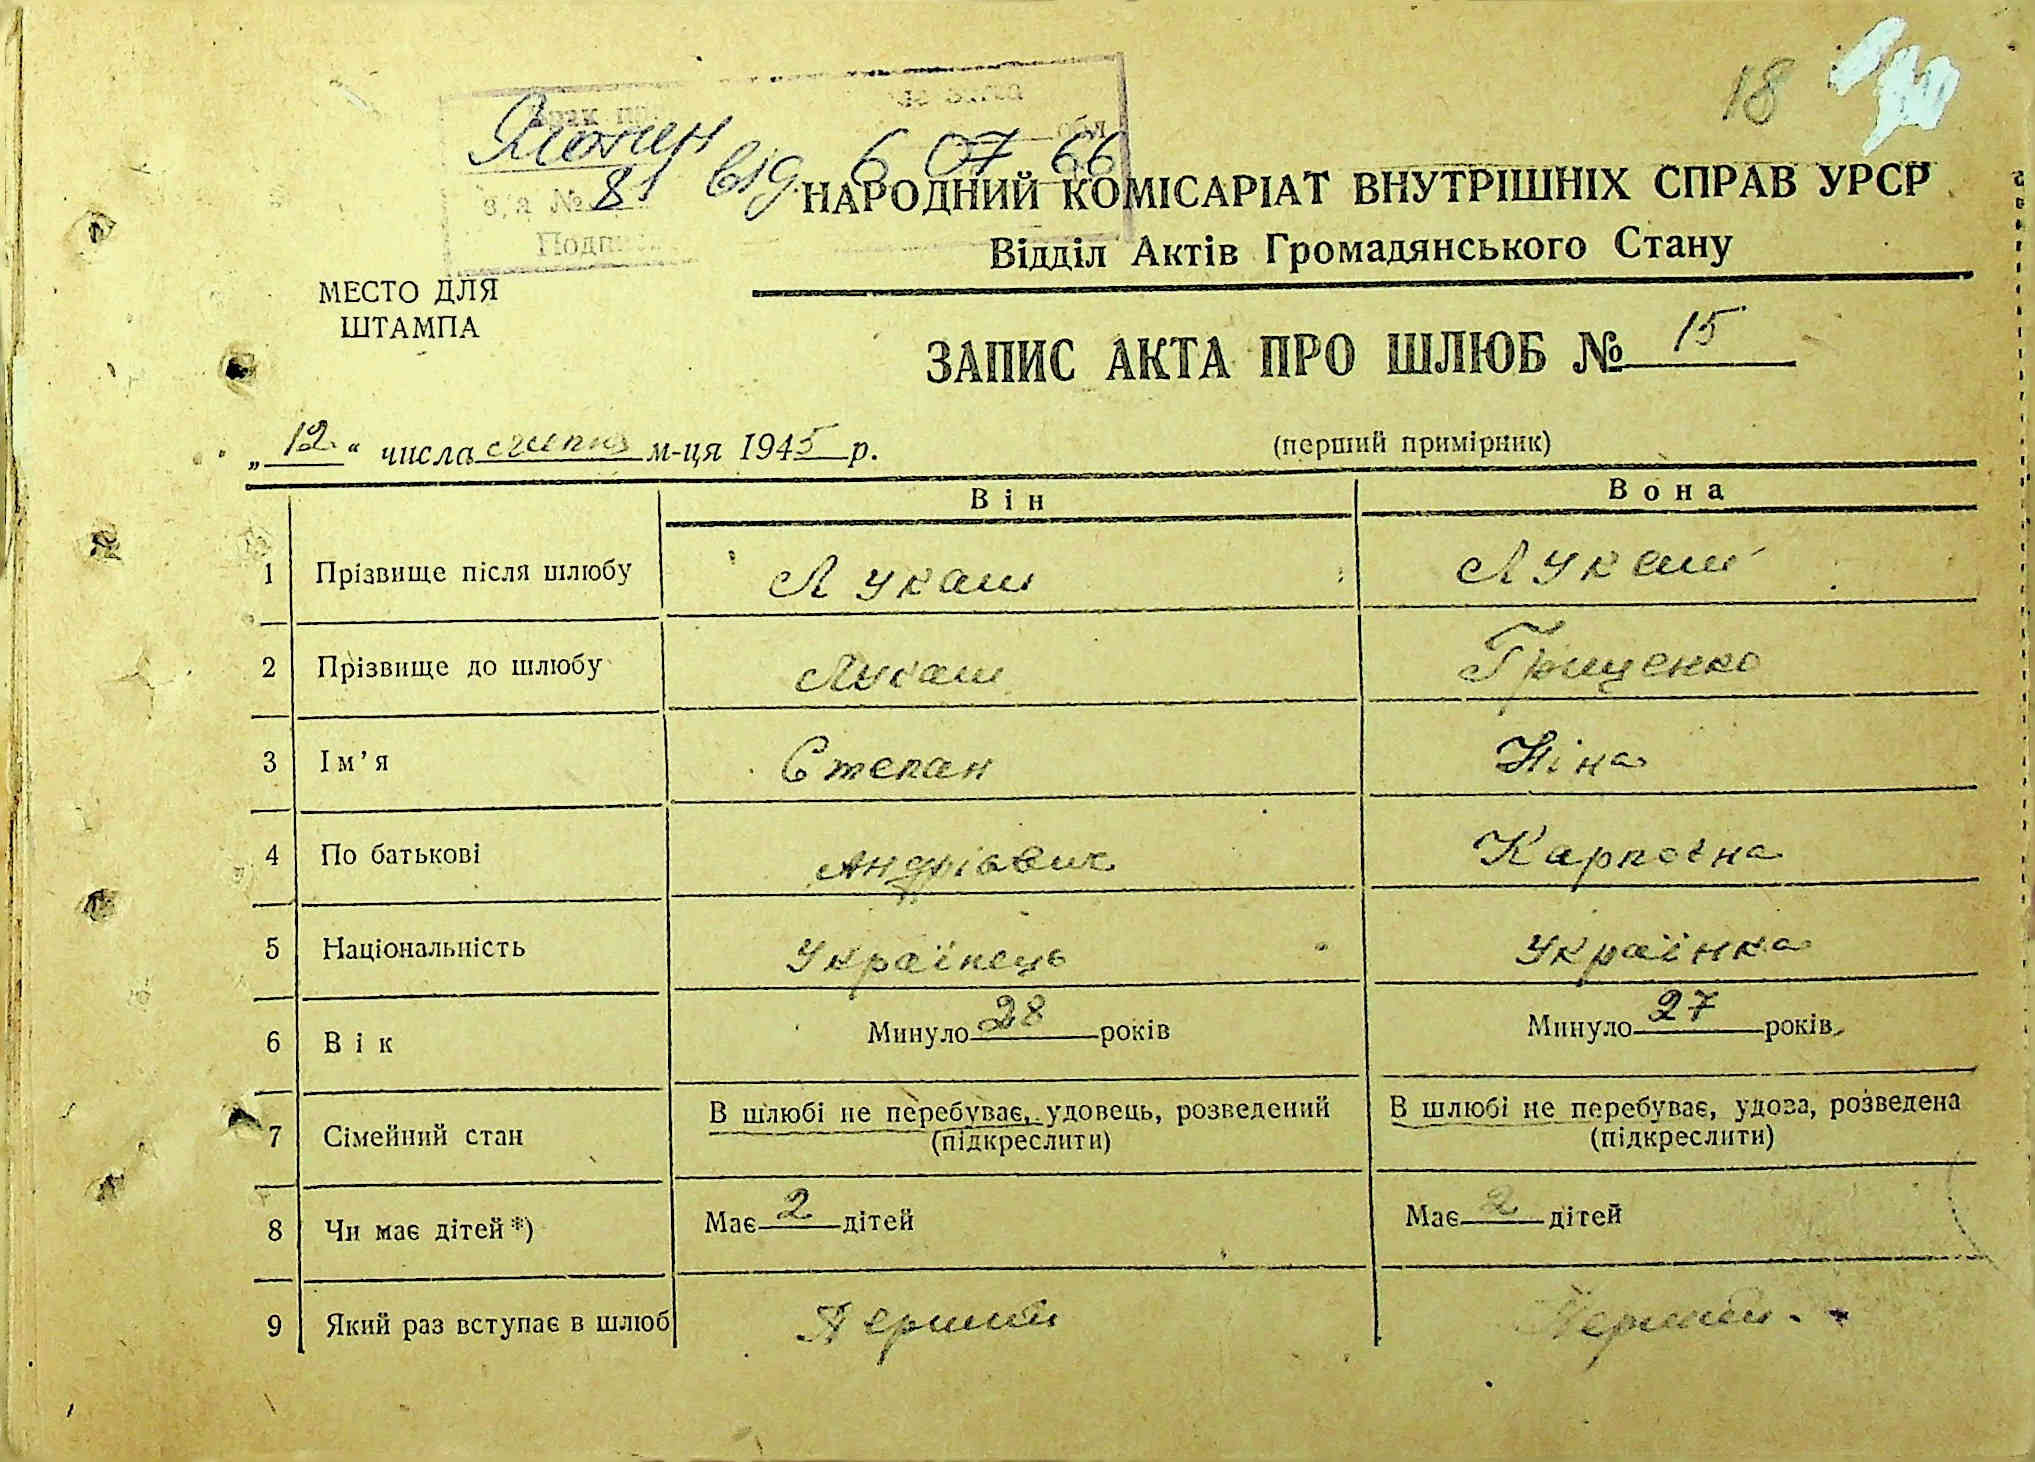 18
від 6 07 66
з/а № 81
НАРОДНИЙ КОМІСАРІАТ ВНУТРІШНІХ СПРАВ УРСР
Відділ Актів Громадянського Стану
МЕСТО ДЛЯ
ШТАМПА
ЗАПИС АКТА ПРО ШЛЮБ № 15
„12“ числа м-ця 1945 р.
(перший примірник)
Він Вона
1 Прізвище після шлюбу Лукаш Лукаш
2 Прізвище до шлюбу Лукаш Грищенко
3 Ім'я Степан Ніна
4 По батькові Андрієвич Карповна
5 Національність Українець Українка
6 Вік Минуло 28 років Минуло 27 років
7 Сімейний стан В шлюбі не перебуває, удовець, розведений В шлюбі не перебуває, удова, розведена
(підкреслити) (підкреслити)
8 Чи має дітей*) Має 2 дітей Має 2 дітей
9 Який раз вступає в шлюб Перший Перший.